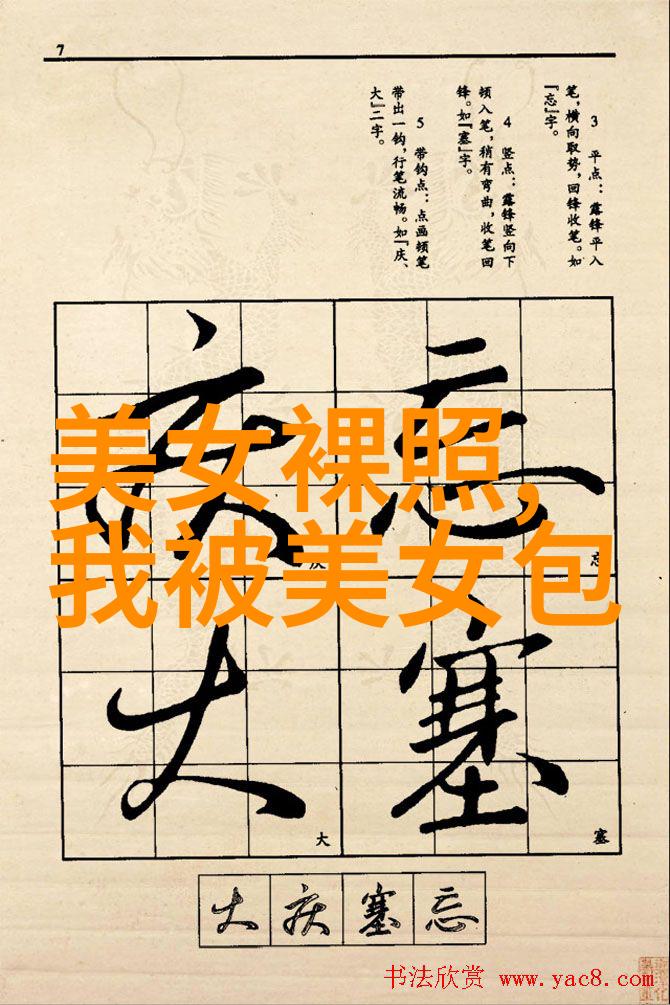 7
3 平点：露锋平入
笔，横向取势，回锋收笔。如
『忘』字。
4 竖点：露锋竖向下
顿入笔，稍有弯曲，收笔回
锋。如『塞』字。
5 带钩点：点画顿笔
带出一钩，行笔流畅。如『庆、
大』二字。
忘
塞
庆
大
美女裸照，
我被美女包
忘
塞
庆
大
大 庆 塞 忘
书法欣赏 www.yac8.com